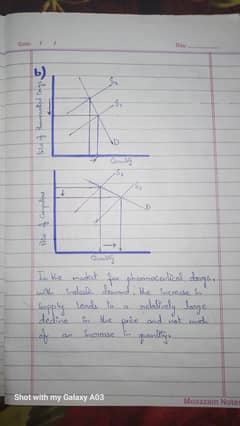 Date: / /
Day:
b)
Price of Pharmaceutical Drugs
S₁
S₂
D
Quantity
S₁
S₂
D
Price of Computers
Quantity
In the market for pharmaceutical drugs,
with inelastic demand, the increase in
supply leads to a relatively large
decline in the price and not much
of an increase in quantity.
Shot with my Galaxy A03
Moxazam Notes